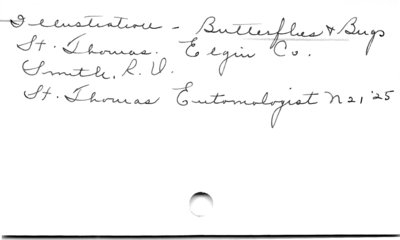 Illustration - Butterflies & Bugs
St. Thomas. Elgin Co.
Smith, R. V.
St. Thomas Entomologist N 21 '25